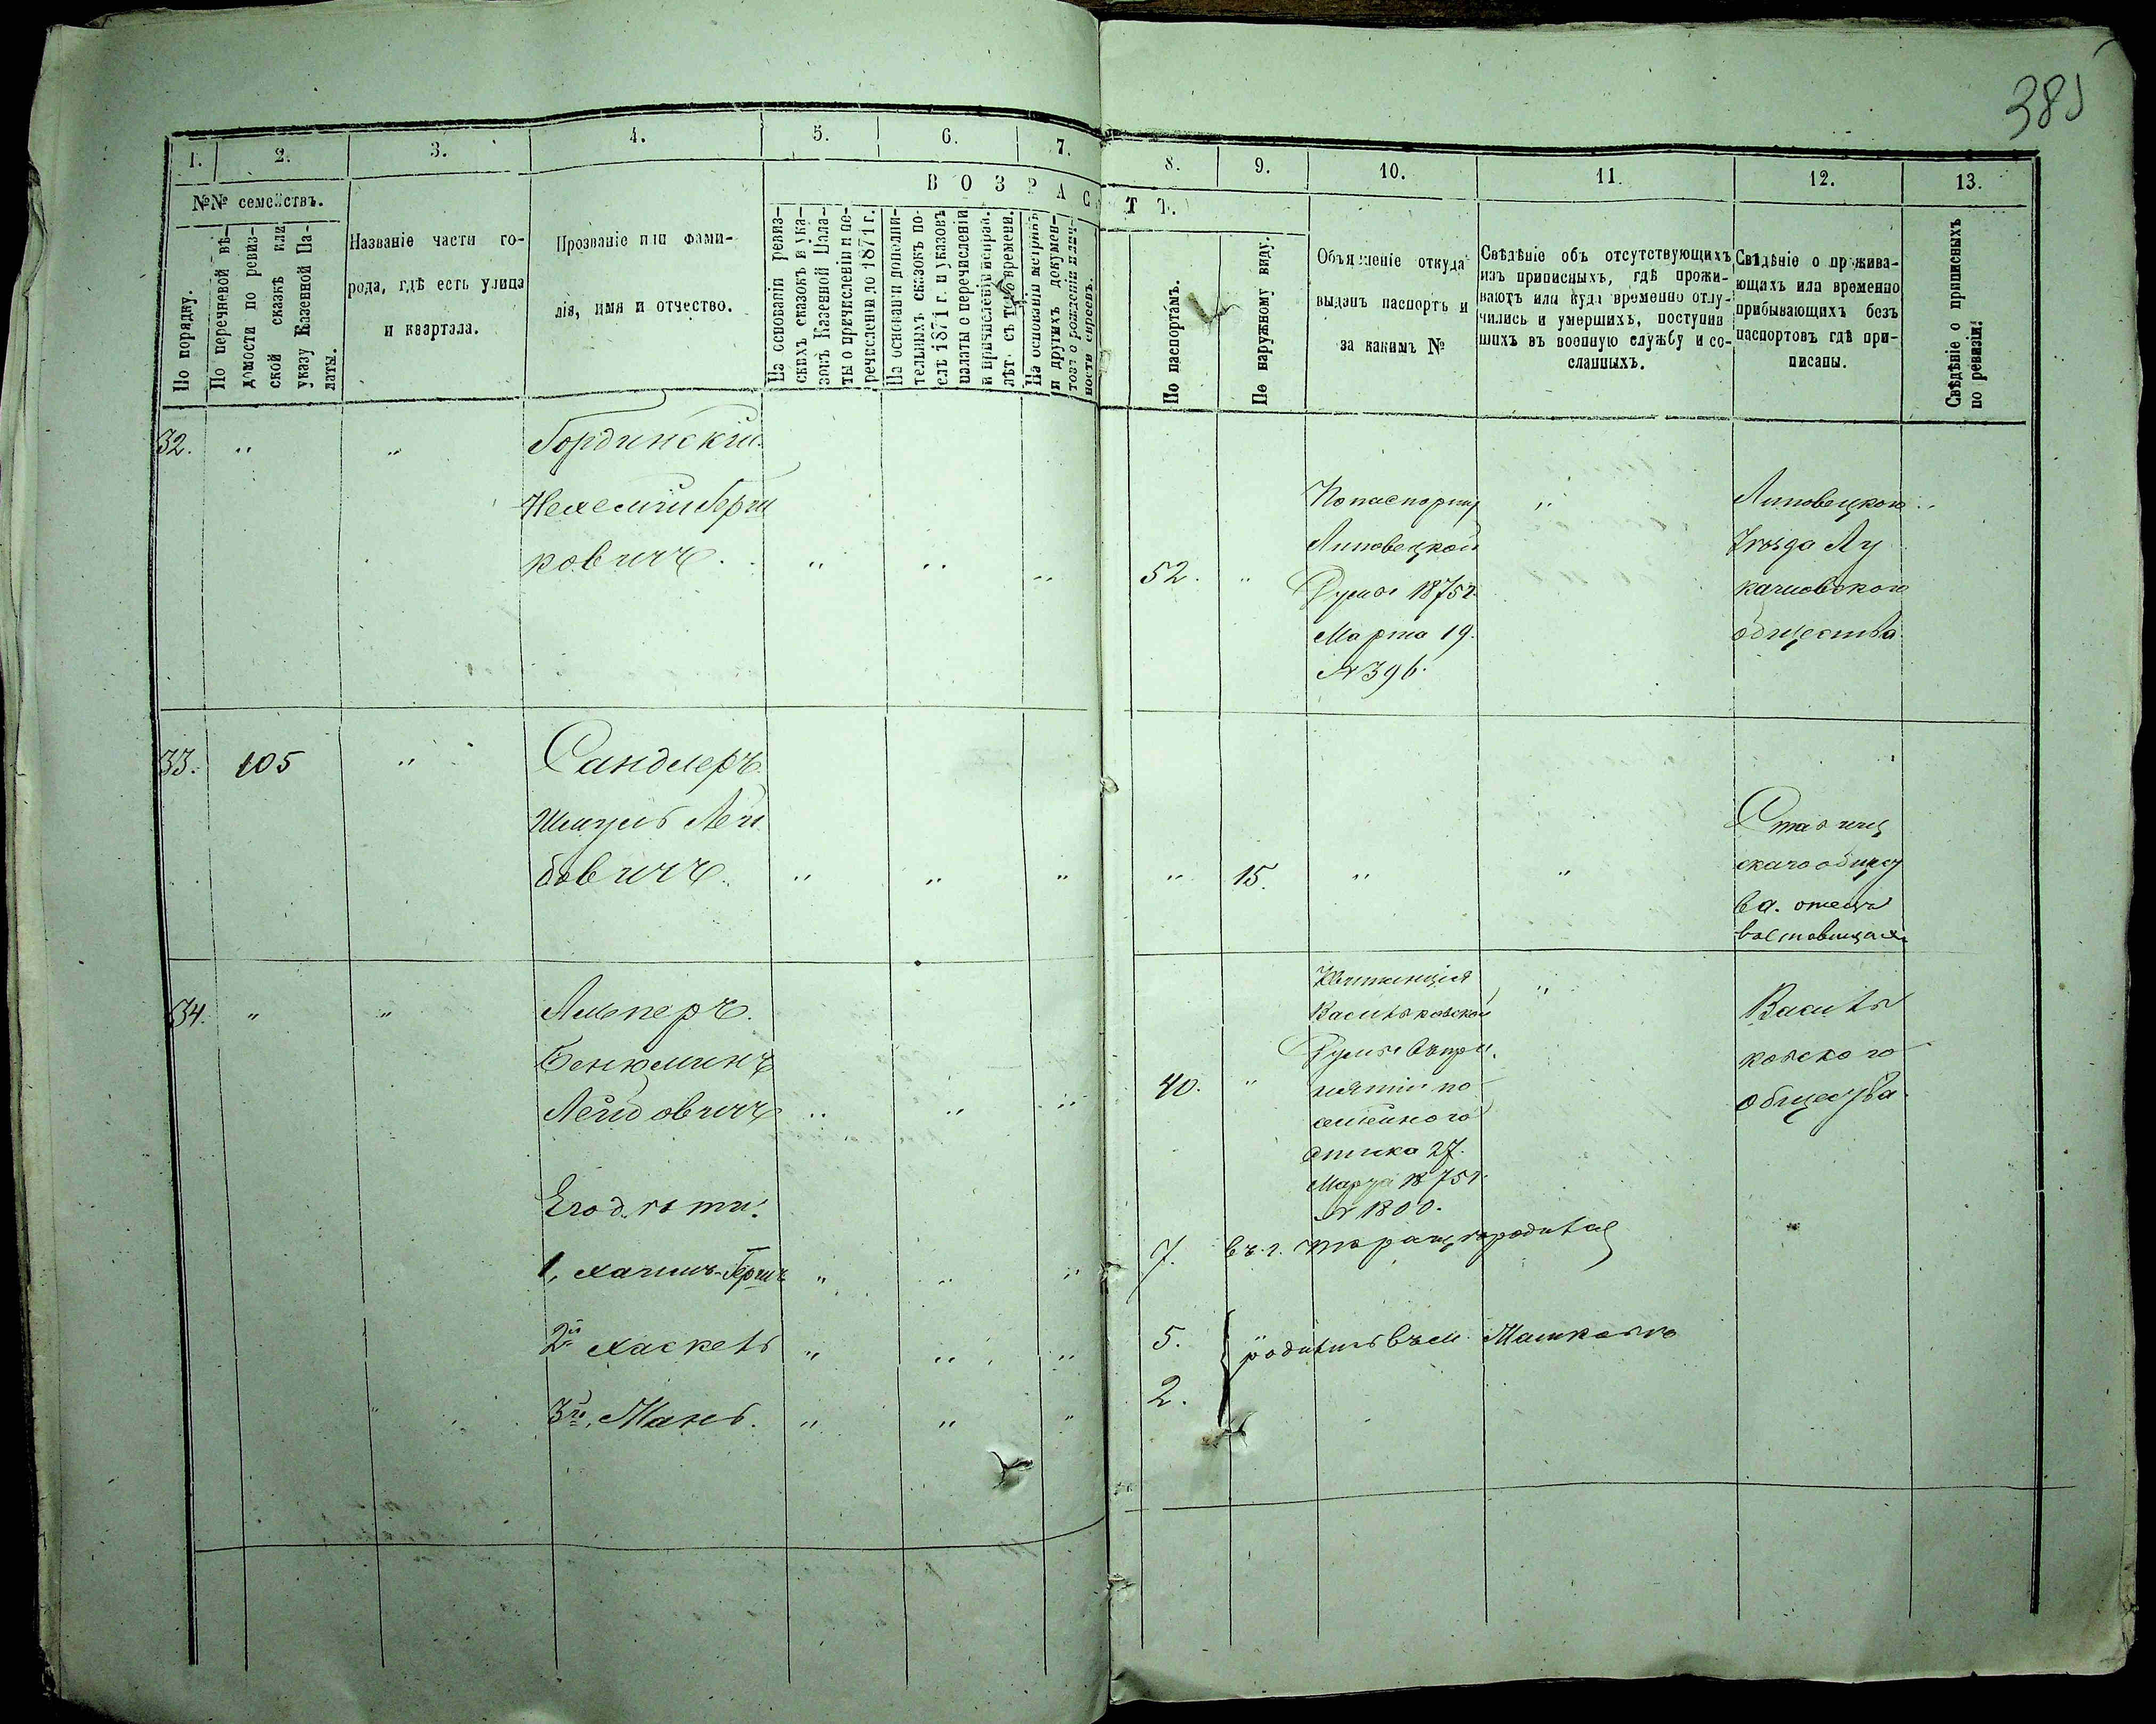 385
1. 2. 3. 4. 5. 6. 7. 8. 9. 10. 11. 12. 13.
№№ семействъ.
ВОЗРАСТЪ.
По порядку.
По перечневой вѣ-
домости по ревиз-
ской сказкѣ или
указу Казенной Па-
латы.
Названіе части го-
рода, гдѣ есть улица
и квартала.
Прозваніе или фами-
лія, имя и отчество.
На основаніи ревиз-
скихъ сказокъ и ука-
зовъ Казенной Пала-
ты о причисленіи и пе-
речисленіи до 1871 г.
На основаніи дополни-
тельныхъ сказокъ по-
слѣ 1871 г. и указовъ
палаты о перечисленіи
и причисленіи неправ.
лѣт. съ того времени.
На основаніи метрикъ
и другихъ докумен-
товъ о рожденіи и лич-
ности евреевъ.
По паспортамъ.
По наружному виду.
Объясненіе откуда
выданъ паспортъ и
за какимъ №
Свѣдѣніе объ отсутствующихъ
изъ приписныхъ, гдѣ прожи-
ваютъ или куда временно отлу-
чились и умершихъ, поступив
шихъ въ военную службу и со-
сланныхъ.
Свѣдѣніе о прожива-
ющихъ или временно
прибывающихъ безъ
паспортовъ гдѣ при-
писаны.
Свѣдѣніе о приписныхъ
по ревизіи:
32. " " Гординскій
Нехемій Герш
ковичъ. " " " 52. "
По паспорту
Липовецкой
Думы 1875 г.
Марта 19.
№ 396.
"
Липовецкого
Уѣзда Лу
кашовского
общества
"
33. 105 " Сандлеръ
Шмуль Лей
бовичъ. " " " " 15. " "
Ставищ
скаго общес
ва. отецъ
въ Ставищахъ
34. " " Альперъ.
Бенюминъ
Лейбовичъ " " " 40. "
Квитанція
Васильковской
Думы въ при
нятіи по
семейного
списка 27.
Марта 1875 г.
№ 1800.
"
Василь
ковского
общества.
Его дѣти:
1, Хаимъ-Гершъ " " " 7. въ г. Таращ родился
2й Хаскель " " " 5. родились въ м. Машковъ
3й, Мань. " " " 2.